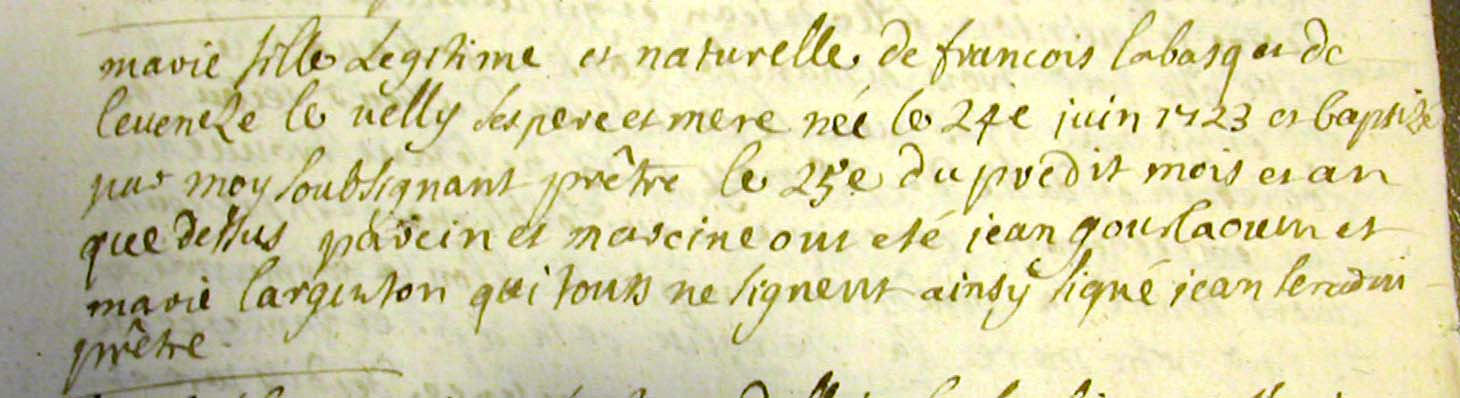 marie fille Legitime et naturelle de francois labasq et de
leveneze le velly ses pere et mere née le 24e juin 1723 et baptizé
par moy soubsignant prêtre le 25e du predit mois et an
que dessus parein et mareine ont eté jean gourlaouen et
marie largenton qui touts ne signent ainsy signé jean
prêtre